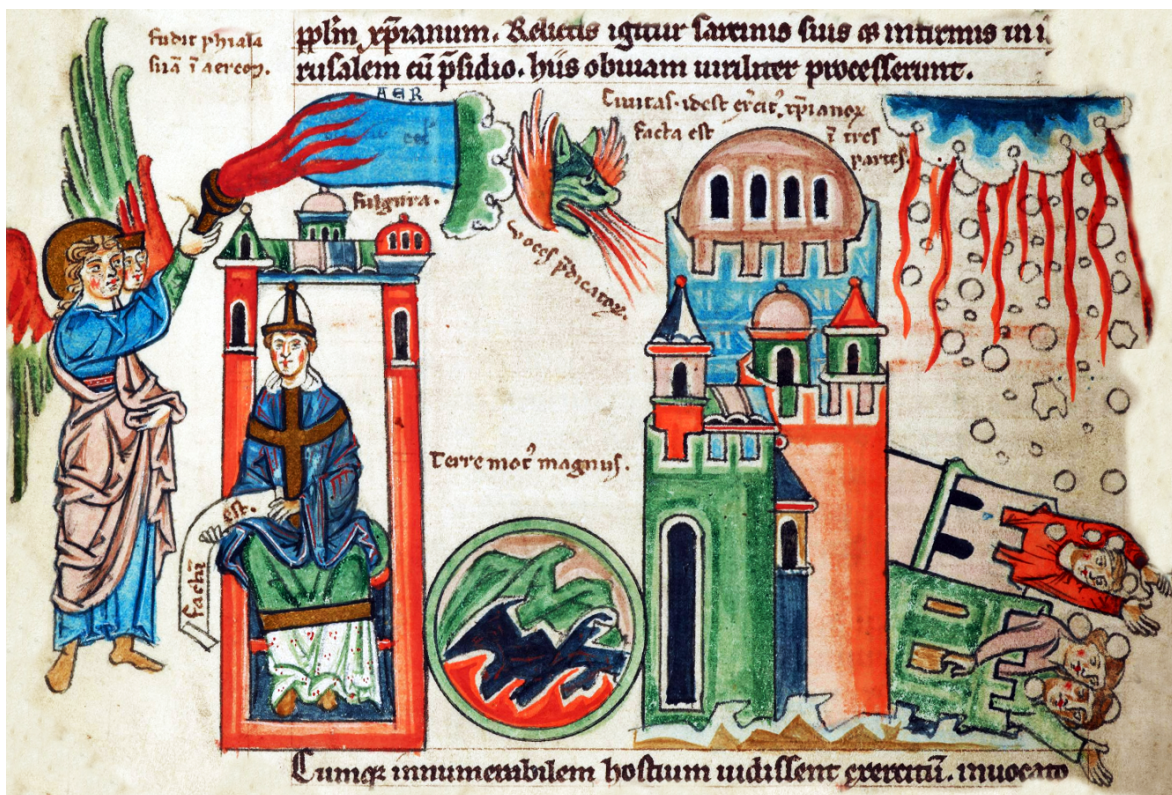 fudit phiala
suā ī aerem.
pplm̄ xp̄ianum. Relictis igitur sarcinis suis & infirmis in i
rusalem cū p̄sidio. hiis obuiam uiriliter processerunt.
AER
fulgura.
voces p̄dicatoꝝ.
Ciuitas. idest ex̄citꝰ xp̄ianoꝝ
facta est ī tres
partes.
Terre motꝰ magnus.
factū est.
Cumqꝫ innumerabilem hostium uidissent exercitū. inuocato